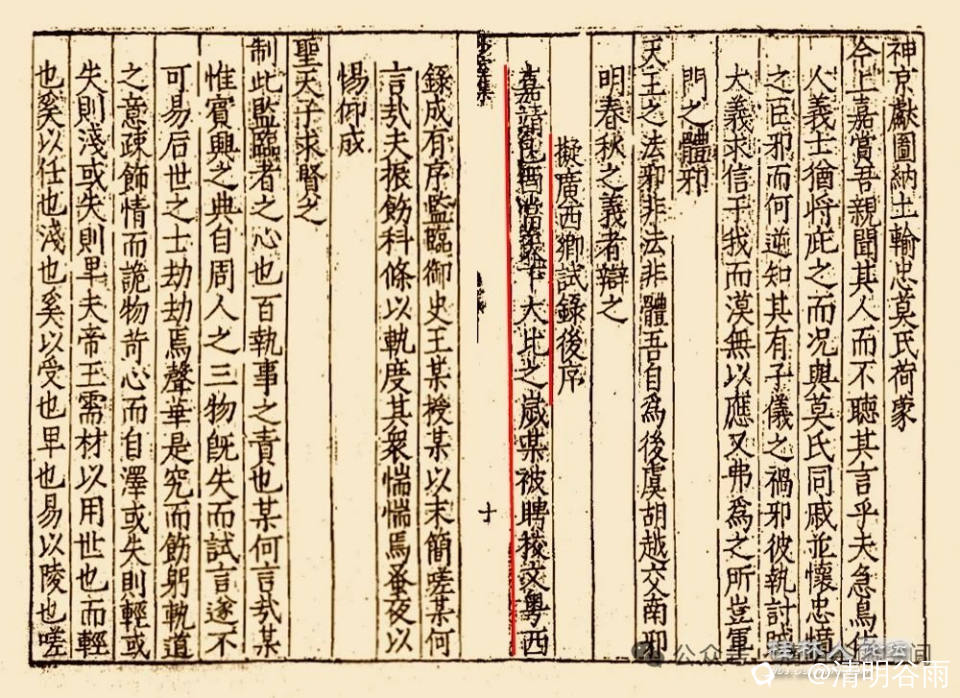 神京獻圖納土輸忠莫氏荷蒙
今上嘉賞吾親聞其人而不聽其言乎夫急鳥依
人義士猶將庇之而况與莫氏同戚並懷忠憤
之臣邪而何逆知其有子儀之禍邪彼執計
大義求信于我而漠無以應又弗爲之所豈軍
門之體邪
天王之法邪非法非體吾自爲後虞胡越交南邪
明春秋之義者辯之
擬廣西鄉試錄後序
嘉靖己酉 大比之歲某被聘挍文粤西
十
錄成有序監臨御史王某授某以末簡嗟某何
言哉夫振飭科條以軌度其衆惴惴焉蚤夜以
惕仰成
聖天子求賢之
制此監臨者之心也百執事之責也某何言哉某
惟賓興之典自周人之三物既失而試言遂不
可易后世之士劫劫焉聲華是究而飭躬軌道
之意疎飾情而詭物苛心而自澤或失則輕或
失則淺或失則卑夫帝王需材以用世也而輕
也奚以任也淺也奚以受也卑也易以陵也嗟
公众号
@清明谷雨